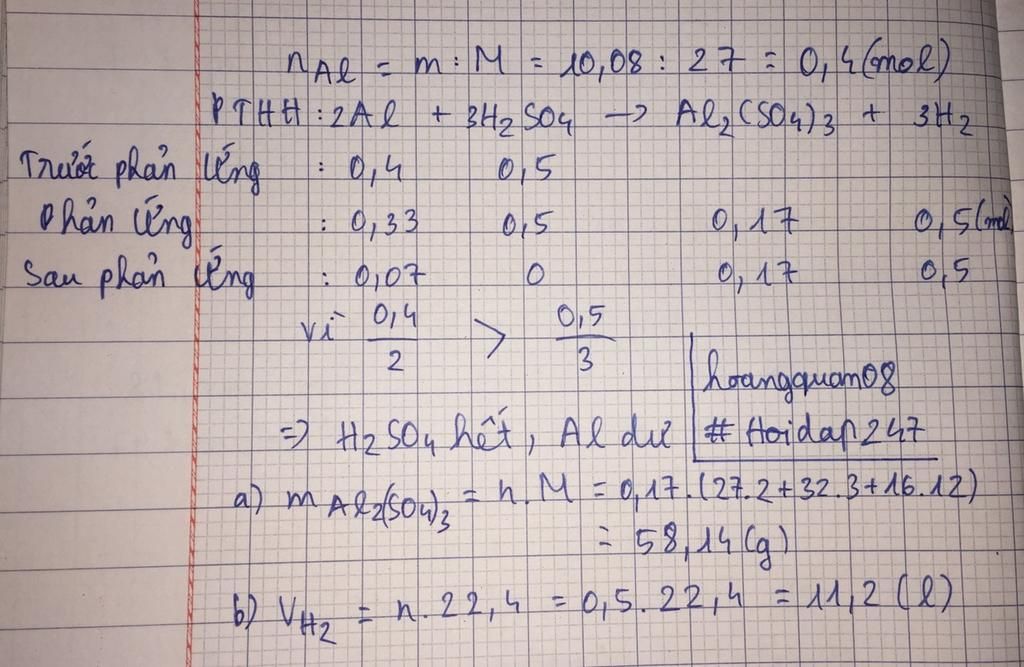 nAl = m : M = 10,08 : 27 = 0,4 (mol)
PTHH : 2Al + 3H2SO4 → Al2(SO4)3 + 3H2
Trước phản ứng : 0,4 0,5
Phản ứng : 0,33 0,5 0,17 0,5 (mol)
Sau phản ứng : 0,07 0 0,17 0,5
Vì 0,4/2 > 0,5/3
hoangquan08
=> H2SO4 hết, Al dư
#Hoidap247
a) mAl2(SO4)3 = n.M = 0,17.(27.2+32.3+16.12)
= 58,14 (g)
b) VH2 = n.22,4 = 0,5.22,4 = 11,2 (l)